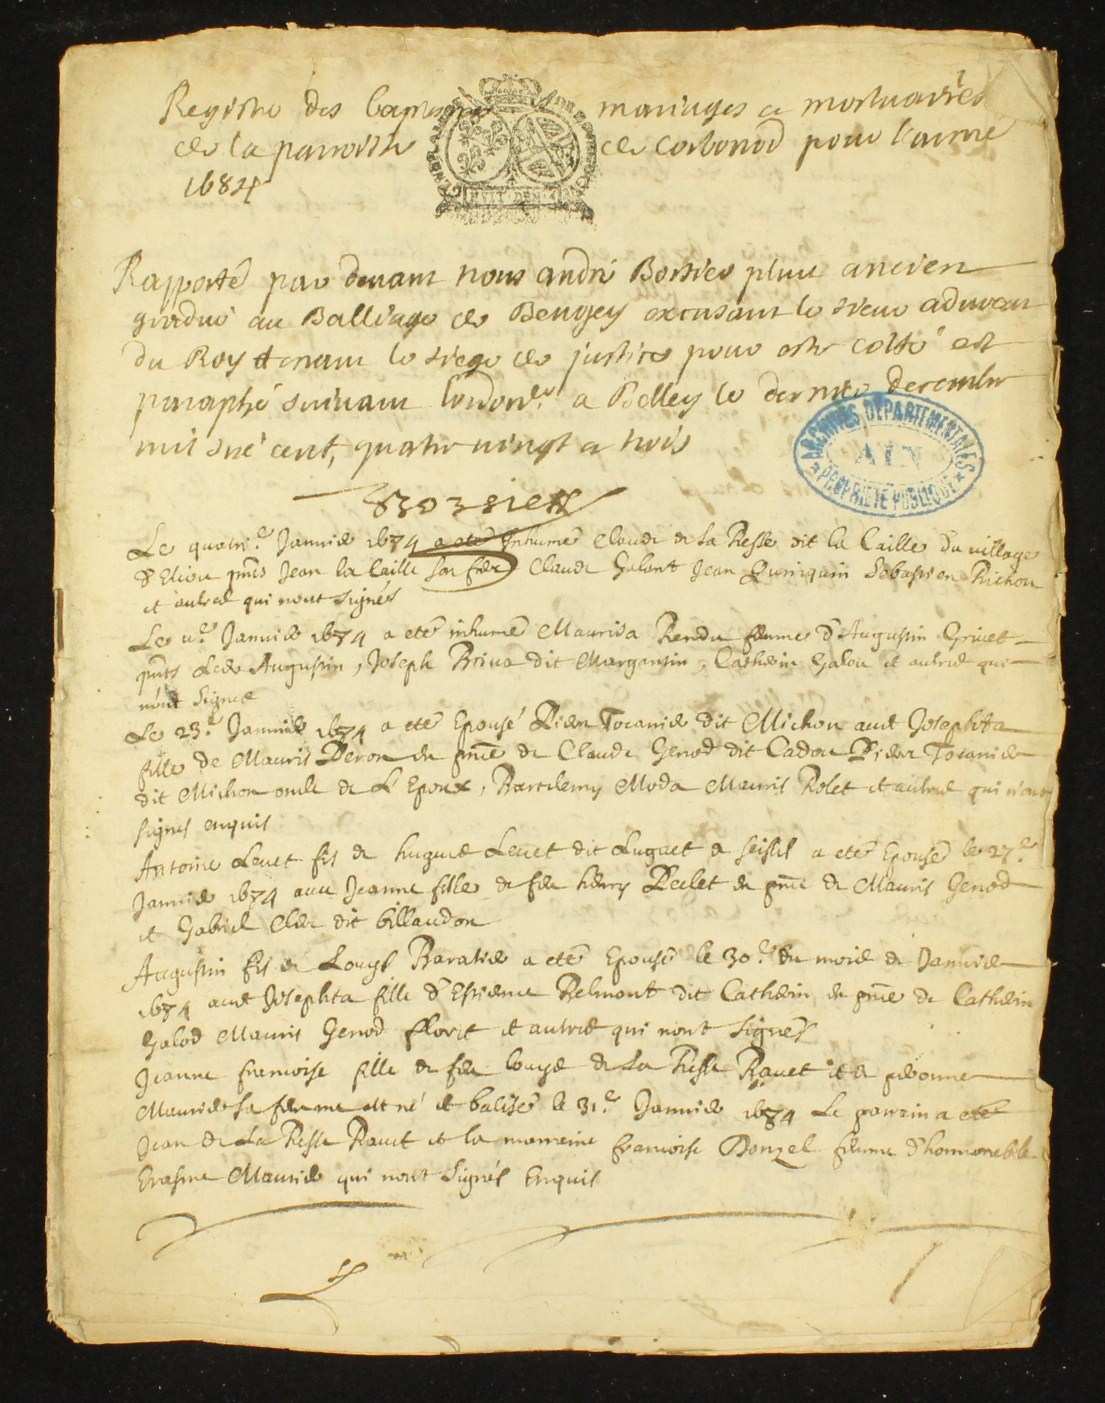 Registre des baptesmes mariages et mortuaires
de la parroisse de Corbonod pour l'année
1684
Rapporté par devant nous André Borsier plus ancien
gradué au Balliage de Beugey excusant le sieur advocat
du Roy tenant le siege de justice pour estre cotté et
paraphé suivant l'ordon.ce a Belley le dernier decembre
mil six cent, quatre vingt et trois
Borsier
ARCHIVES DÉPARTEMENTALES
AIN
PROPRIÉTÉ PUBLIQUE
Le quatri.e Janvier 1684 a eté Inhumé Claude de La Pesse dit la Caille du village
d'Eliou pnts Jean la Caille son fils Claude Galant Jean Sebastien Richon
et autres qui n'ont signés
Le Janvier 1684 a eté inhumé Maurisa Rendu femme d'Augustin Grivet
pnts Augustin, Joseph Briva dit Margantin, Cathelin Galou et autres qui
n'ont signé
Le 23.e Janvier 1684 a eté Epousé Pider Tocanier dit Michon avec Josephta
fille de Mauris Peron en pnce de Claude Genod dit Cadou Pider Tocanier
dit Michon oncle de L'Epoux, Bartelemy Moda Mauris Rolet et autres qui n'ont
signés enquis
Antoine Levet fils de hugues Levet dit Luguet de seissel a eté Epousé le 27.e
Janvier 1684 avec Jeanne fille de feu henry Peclet en pnce de Mauris Genod
et Gabriel dit billaudon
Augustin fils de Louys Baratier a eté Epousé le 30.e du mois de Janvier
1684 avec Josephta fille d'Estienne Belmont dit Cathelin en pnce de Cathelin
Galod Mauris Genod floret et autres qui n'ont signés
Jeanne francoise fille de feu louys de La Pesse Ravet et de pernonne
Maurier sa femme est né et batisée le 31.e Janvier 1684 Le parrain a eté
Jean de La Pesse Ravet et la marraine francoise Donzel femme d'honnorable
Erasme Maurier qui n'ont signés Enquis